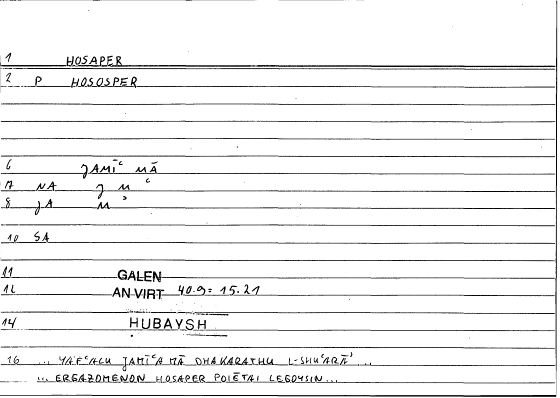 1 HOSAPER
2 P HOSOSPER
6 JAMĪʿ MĀ
7 NA J M ʿ
8 JA M ʾ
10 SA
11 GALEN
12 AN VIRT 40.9 = 15.21
14 HUBAYSH
16 ... YAFʿALU JAMĪʿA MĀ DHAKARATHU L-SHUʿARĀʾ ...
... ERGAZOMENON HOSAPER POIĒTAI LEGOYSIN ...